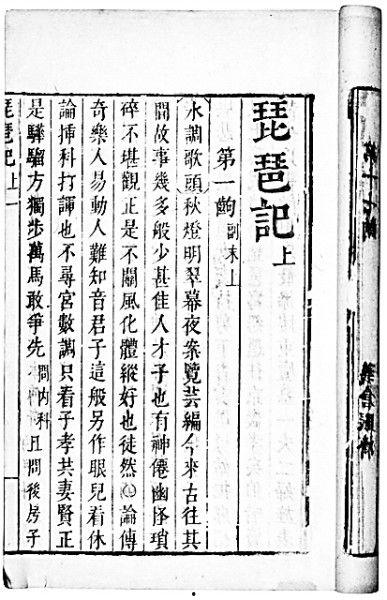 琵琶記上
第一齣 副末上
水調歌頭秋燈明翠幕夜案覽芸編今來古往其
間故事幾多般少甚佳人才子也有神僊幽怪瑣
碎不堪觀正是不關風化體縱好也徒然○論傳
奇樂人易動人難知音君子這般另作眼兒看休
論揷科打諢也不尋宮數調只看子孝共妻賢正
是驊騮方獨步萬馬敢爭先 問內科 且問後房子
琵琶記上 一